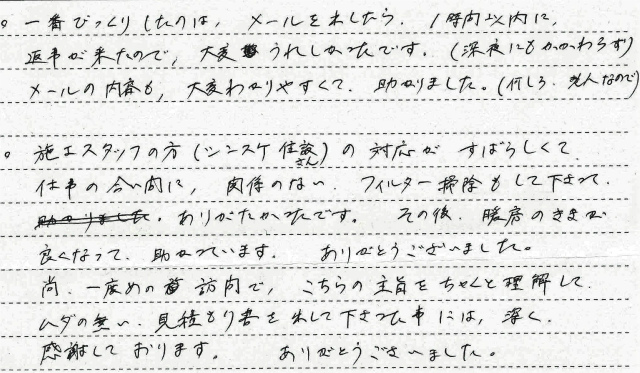 。一番びっくりしたのは、メールを出したら、1時間以内に、
返事が来たので、大変うれしかったです。(深夜にもかかわらず)
メールの内容も、大変わかりやすくて、助かりました。(何しろ、老人なので)
。施工スタッフの方(シンスケ住設さん)の対応がすばらしくて
仕事の合い間に、関係のない、フィルター掃除もして下さって、
助かりました。ありがたかったです。その後、暖房のききが
良くなって、助かっています。ありがとうございました。
尚、一度めの訪問で、こちらの主旨をちゃんと理解して、
ムダの無い、見積もり書を出して下さった事には、深く、
感謝しております。ありがとうございました。